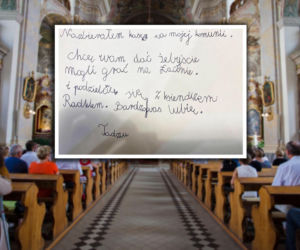 Nazbierałem kasę na mojej komuni.
Chcę wam dać żebyście
mogli grać na żacnie.
i podzielcie się z księdzem
Radkiem. Bardzo was lubię.
Tadziu